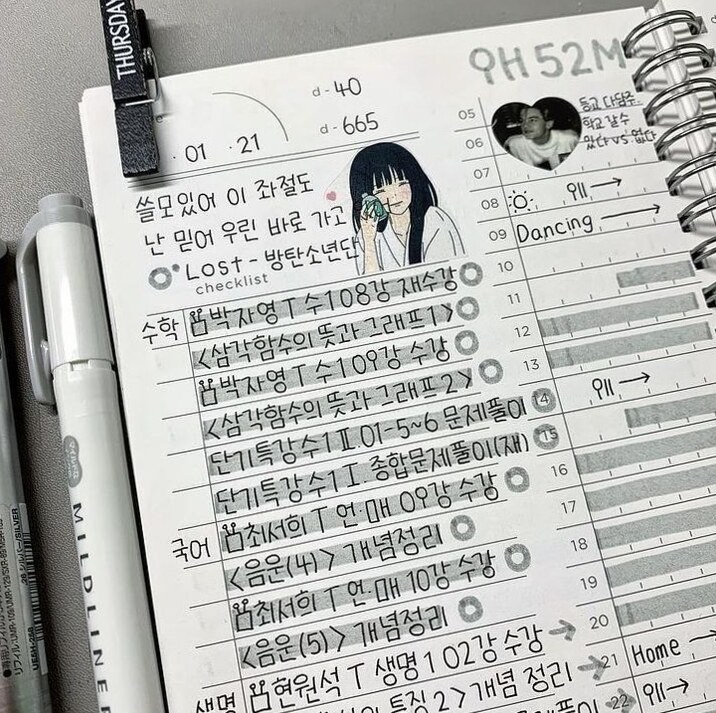 THURSDAY
d-40
d-665
01 .21
9H 52M
쓸모있어 이 좌절도
난 믿어 우린 바로 가고
Lost - 방탄소년단
checklist
수학 박자영 T 수1 08강 재수강
<삼각함수의 뜻과 그래프1>
박자영 T 수1 09강 수강
<삼각함수의 뜻과 그래프2>
단기특강 수1 Ⅱ.01-5~6 문제풀이
단기특강 수1 Ⅰ. 종합문제풀이(재)
국어 최서희 T 언·매 09강 수강
<음운(4)> 개념정리
최서희 T 언·매 10강 수강
<음운(5)> 개념정리
생명 현원석 T 생명1 02강 수강
특징 2> 개념 정리
05
등교 다담주..
학교 갈 수
있다 vs 없다
06
07
08 위 →
09 Dancing →
10
11
12
13
위 →
14
15
16
17
18
19
20
21 Home →
22 위 →
MILDLINER